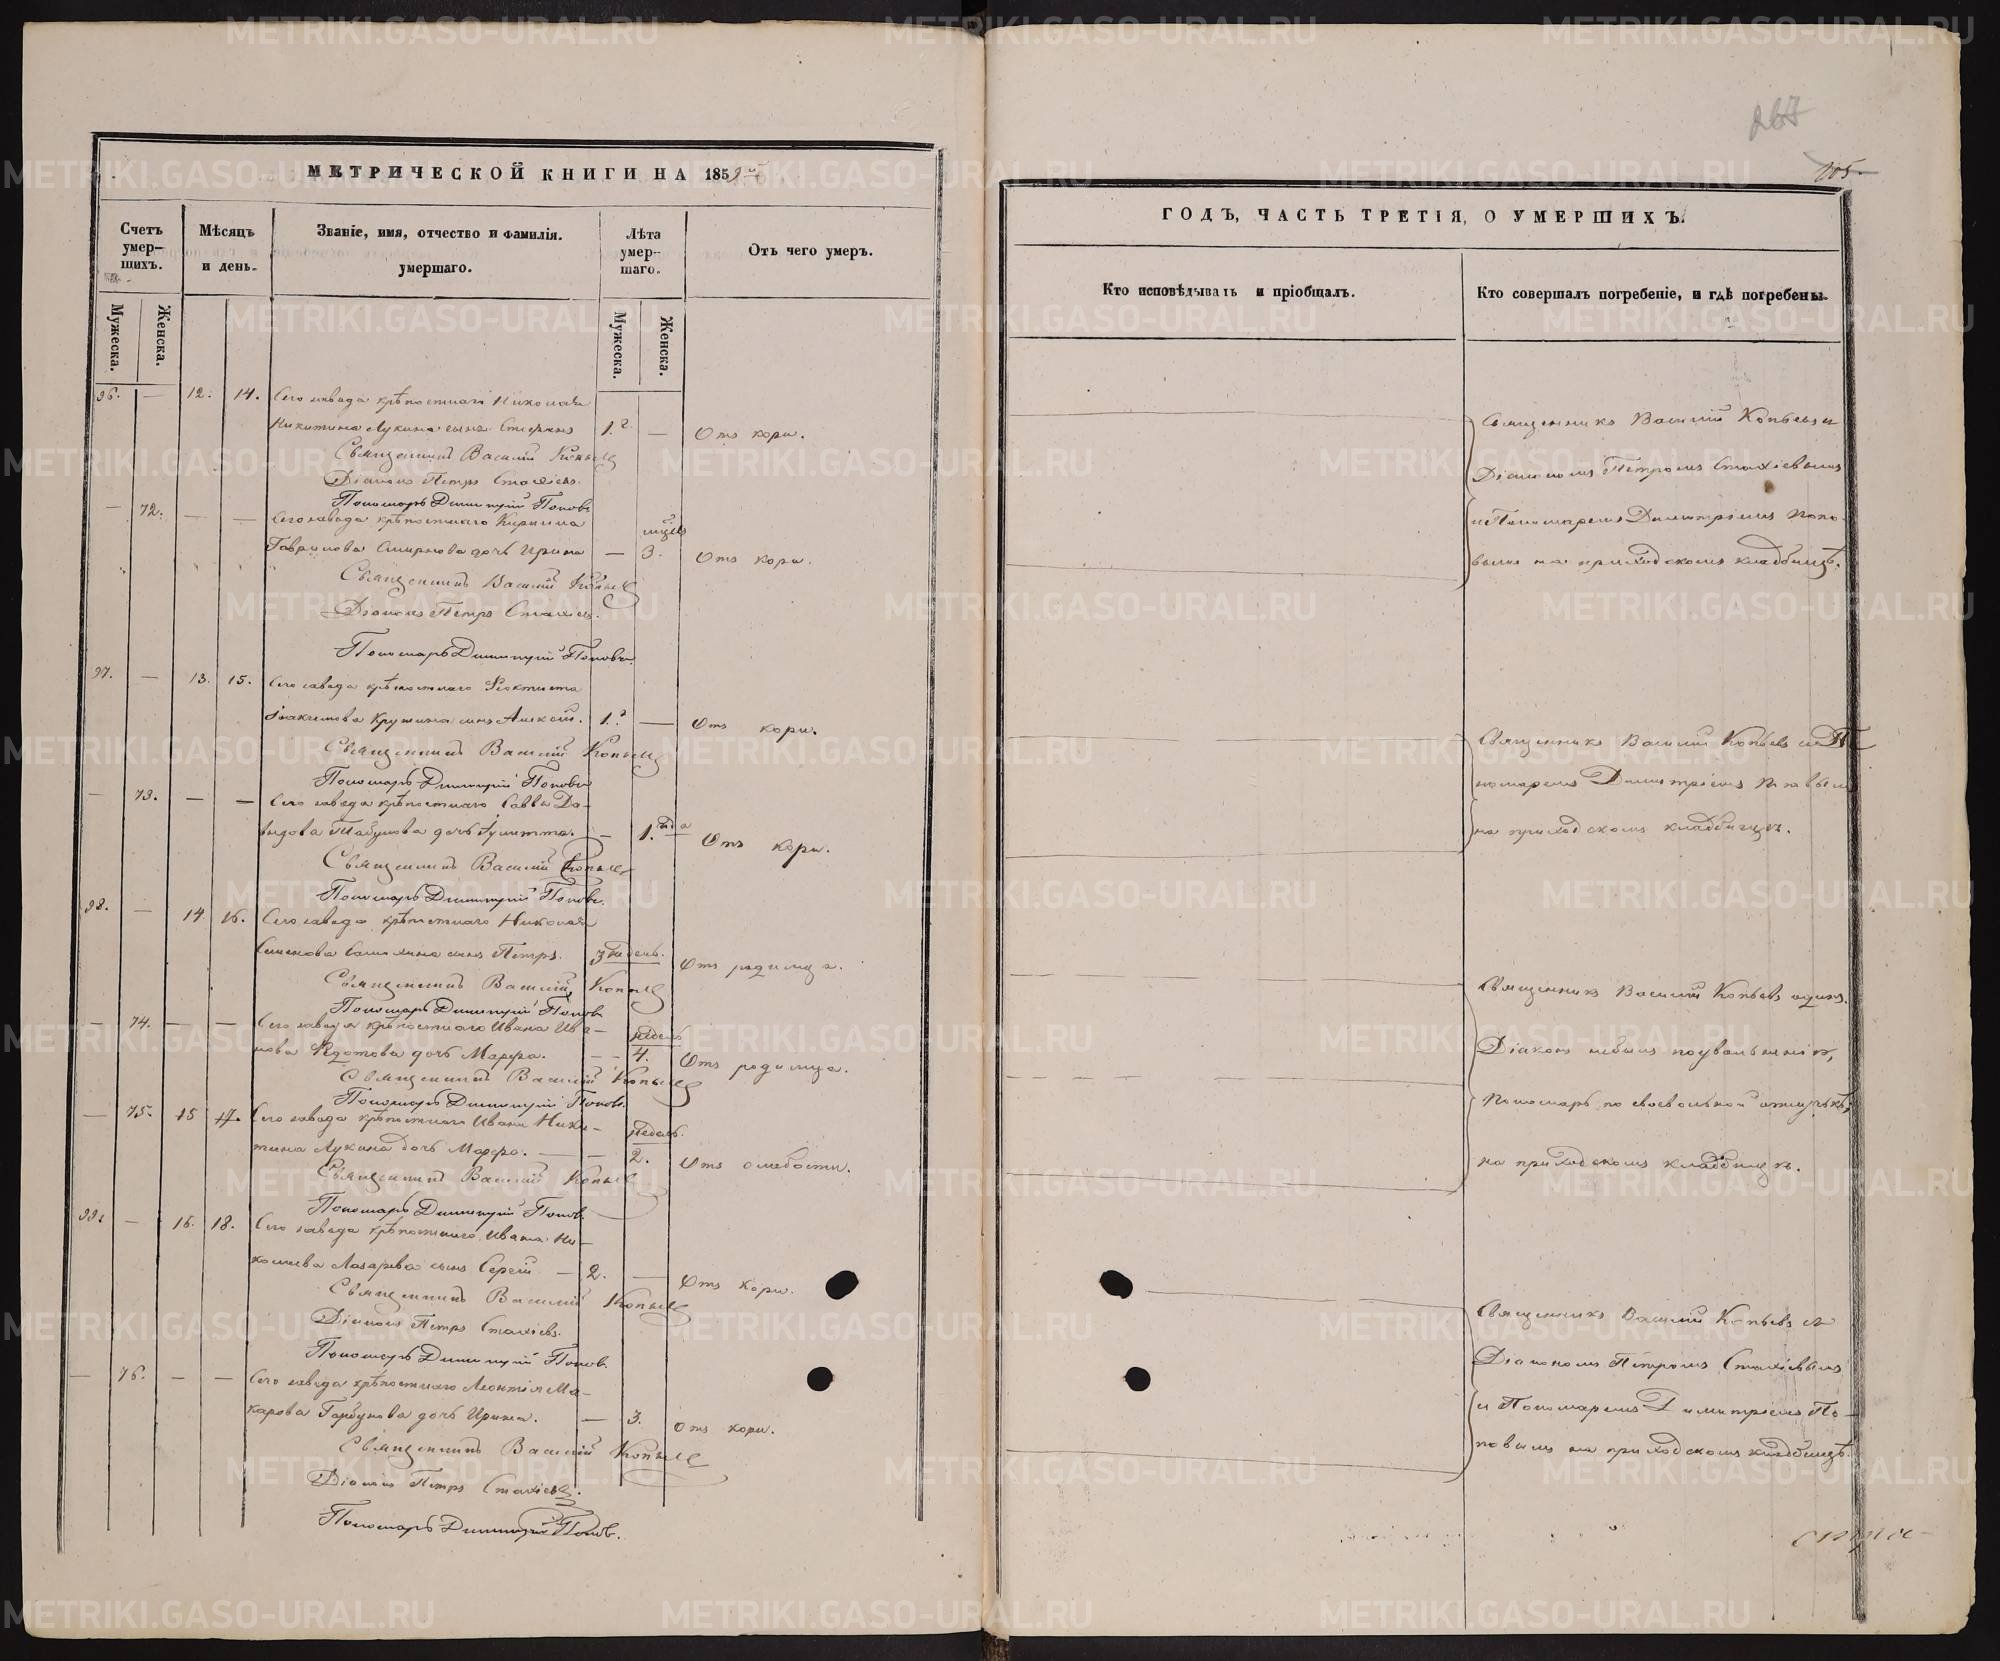 МЕТРИЧЕСКОЙ КНИГИ НА 1859
Счетъ умер-
шихъ.
Мѣсяцъ
и день.
Званіе, имя, отчество и фамилія.
умершаго.
Лѣта
умер-
шаго.
Отъ чего умеръ.
Мужеска.
Женска.
Мужеска.
Женска.
96. — 12. 14. Сего завода крѣпостнаго Николая
Никитина Лукина сынъ Стефанъ 1. г. — Отъ кори.
Священникъ Василій Копьевъ
Діаконъ Петръ Стахіевъ.
Пономарь Димитрій Поповъ
— 72. — — Сего завода крѣпостнаго Кирила
Гаврилова Смирнова дочь Ирина — 3. Отъ кори.
Священникъ Василій Копьевъ
Діаконъ Петръ Стахіевъ.
Пономарь Димитрій Поповъ
97. — 13. 15. Сего завода крѣпостнаго Феоктиста
сынъ Алексѣй. 1. г. — Отъ кори.
Священникъ Василій Копьевъ
Пономарь Димитрій Поповъ
— 73. — — Сего завода крѣпостнаго Саввы Да-
выдова дочь Іулитта. — 1. года Отъ кори.
Священникъ Василій Копьевъ
Пономарь Димитрій Поповъ.
98. — 14. 16. Сего завода крѣпостнаго Николая
Семенова сынъ Петръ. 3 недѣль. Отъ родимца.
Священникъ Василій Копьевъ
Пономарь Димитрій Поповъ
— 74. — — Сего завода крѣпостнаго Ивана Ива- недѣль
нова Федотова дочь Марфа. — — 4. Отъ родимца.
Священникъ Василій Копьевъ
Пономарь Димитрій Поповъ.
— 75. 15 17. Сего завода крѣпостнаго Ивана Ники- недѣль.
тина Лукина дочь Марфа. — — 2. Отъ слабости.
Священникъ Василій Копьевъ
Пономарь Димитрій Поповъ
99. — 16. 18. Сего завода крѣпостнаго Ивана Ни-
колаева Лазарева сынъ Сергій — 2. — Отъ кори.
Священникъ Василій Копьевъ
Діаконъ Петръ Стахіевъ.
Пономарь Димитрій Поповъ.
— 76. — — Сего завода крѣпостнаго Леонтія Ма-
карова Горбунова дочь Ирина. — 3. Отъ кори.
Священникъ Василій Копьевъ
Діаконъ Петръ Стахіевъ.
Пономарь Димитрій Поповъ.
267
105.
ГОДЪ, ЧАСТЬ ТРЕТІЯ, О УМЕРШИХЪ.
Кто исповѣдывалъ и пріобщалъ.
Кто совершалъ погребеніе, и гдѣ погребены.
Священникъ Василій Копьевъ съ
Діакономъ Петромъ Стахіевымъ
и Пономаремъ Димитріемъ Попо-
вымъ на приходскомъ кладбищѣ.
Священникъ Василій Копьевъ съ По
номаремъ Димитріемъ Поповымъ
на приходскомъ кладбищѣ.
Священникъ Василій Копьевъ одинъ.
Діаконъ небылъ по увольненію,
Пономарь по своевольной отлучкѣ,
на приходскомъ кладбищѣ.
Священникъ Василій Копьевъ съ
Діакономъ Петромъ Стахіевымъ
и Пономаремъ Димитріемъ По-
повымъ на приходскомъ кладбищѣ.
METRIKI.GASO-URAL.RU